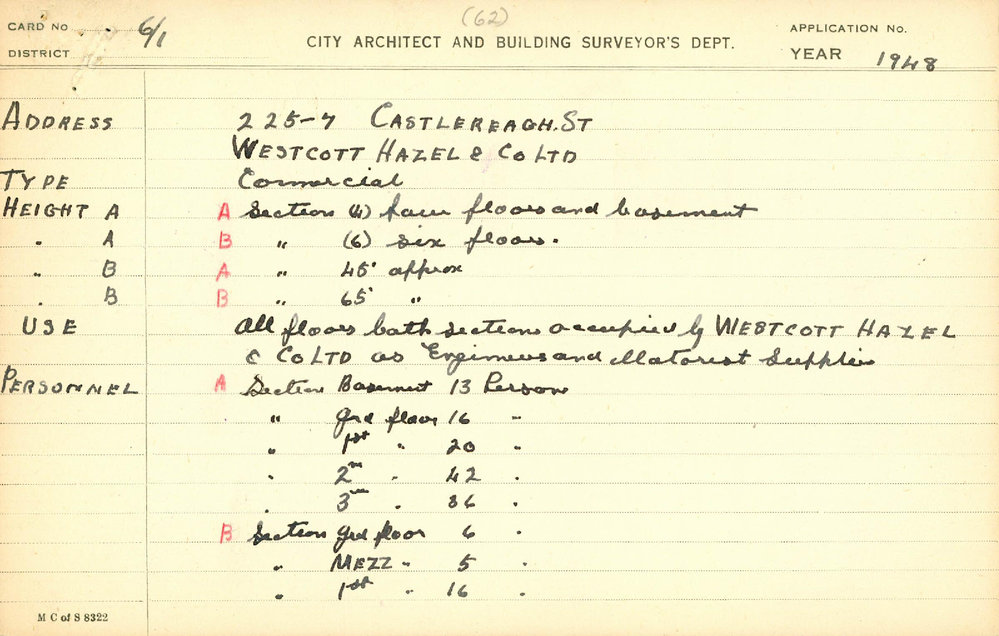 (62)
CARD No 6/1
CITY ARCHITECT AND BUILDING SURVEYOR'S DEPT.
APPLICATION No.
DISTRICT
YEAR 1948
ADDRESS 225-7 CASTLEREAGH.ST
WESTCOTT HAZEL & CO LTD
TYPE Commercial
HEIGHT A A Section (4) four floors and basement
" A B " (6) six floors.
" B A " 45' approx
" B B " 65' "
USE All floors both sections occupied by WESTCOTT HAZEL
& CO LTD as Engineers and Motorist Supplies
PERSONNEL A Section Basement 13 Person
" grd floor 16 "
" 1st " 20 "
" 2nd " 42 "
" 3rd " 36 "
B Section grd floor 6 "
" MEZZ " 5 "
" 1st " 16 "
M C of S 8322